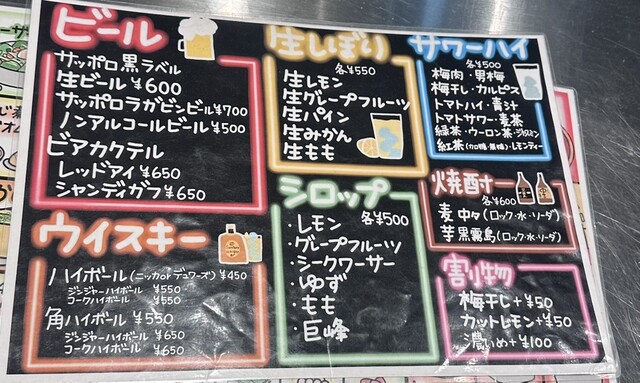 ビール
サッポロ黒ラベル
生ビール ¥600
サッポロラガービンビール ¥700
ノンアルコールビール ¥500
ビアカクテル
レッドアイ ¥650
シャンディガフ ¥650
ウイスキー
ハイボール(ニッカorデュワーズ) ¥450
ジンジャーハイボール ¥550
コークハイボール ¥550
角ハイボール ¥550
ジンジャーハイボール ¥650
コークハイボール ¥650
生しぼり
各¥550
生レモン
生グレープフルーツ
生パイン
生みかん
生もも
シロップ
各¥500
・レモン
・グープフルーツ
・シークワーサー
・ゆず
・もも
・巨峰
サワーハイ
各¥500
梅肉・男梅
梅干し・カルピス
トマトハイ・青汁
トマトサワー・麦茶
緑茶・ウーロン茶・ジャスミン
紅茶(加糖・無糖)・レモンティー
焼酎
各¥600
麦 中々(ロック・水・ソーダ)
芋 黒霧島(ロック・水・ソーダ)
割物
梅干し+¥50
カットレモン+¥50
濃いめ+¥100